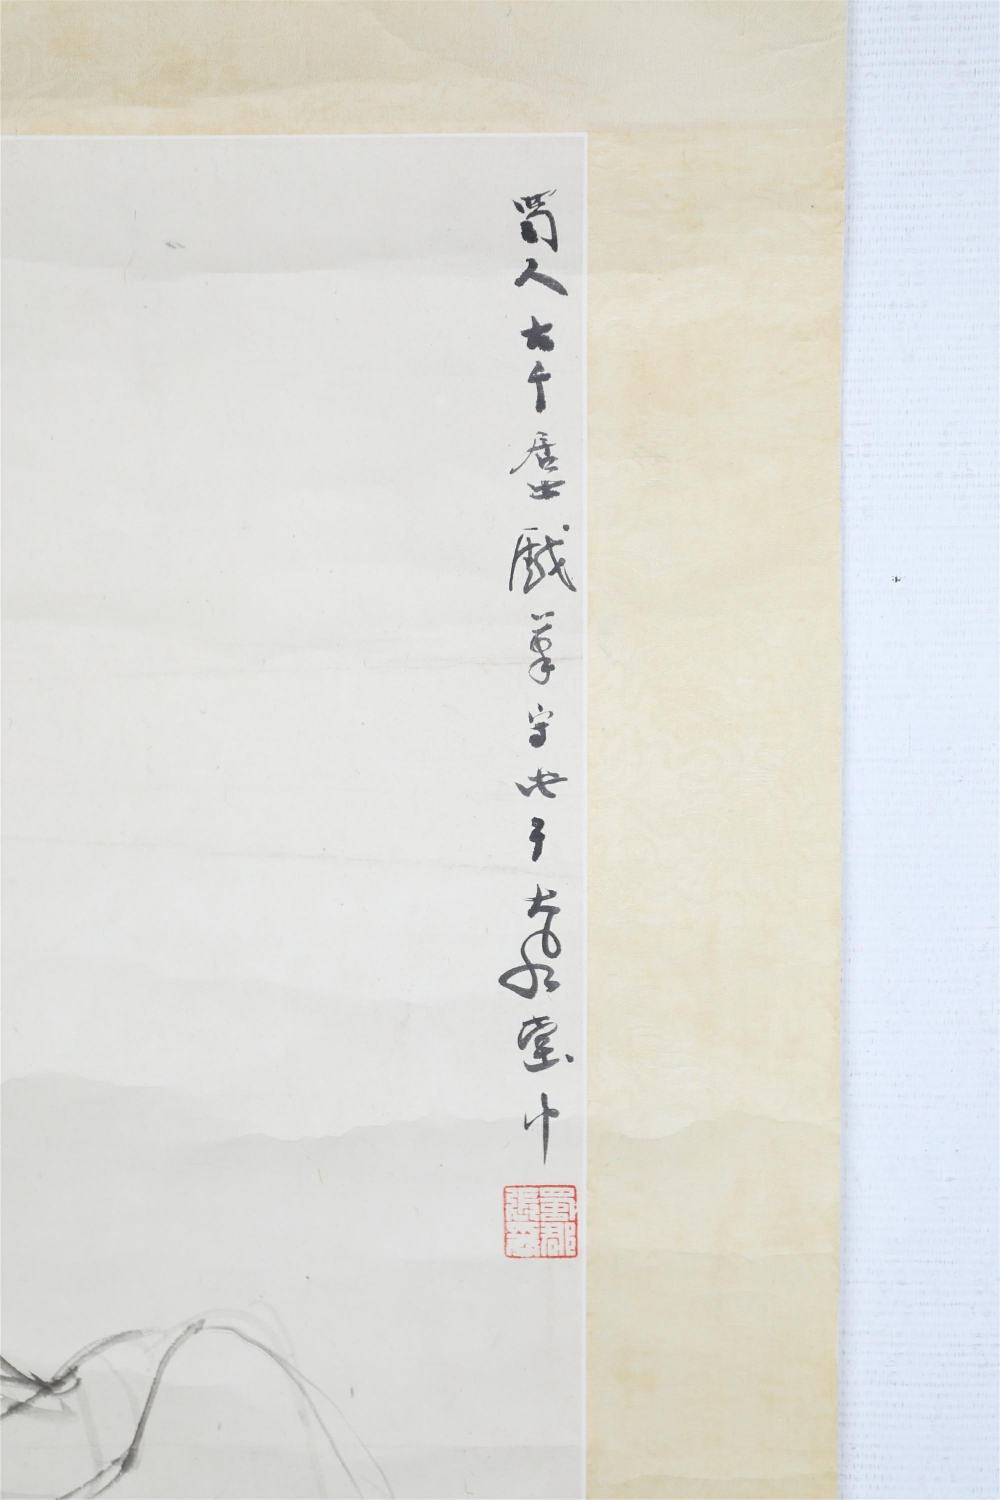 蜀人大千居士戲筆此于大風堂中
蜀郡張爰